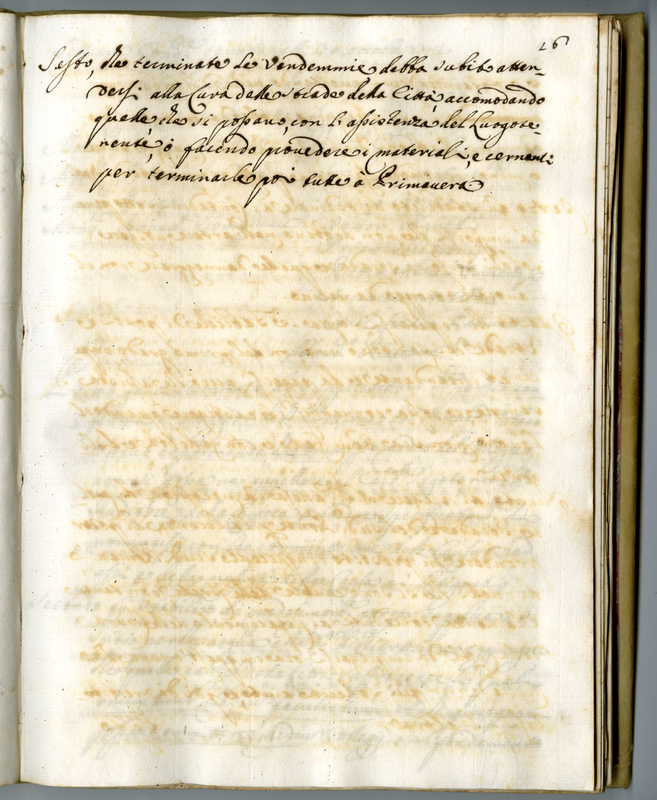 26
Sesto, che terminate le Vendemmie debba subito atten-
dersi alla Cura delle strade della Città accomodando
quelle che si possano, con l'assistenza del Luogote-
nente, ò facendo provedere i materiali, e
per terminarle poi tutte à Primavera